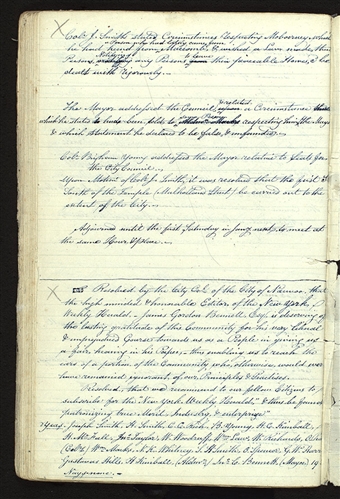 Col. J. Smith stated Circumstances respecting Mobocracy, which
he had heard from Macomb & wished a Law made, that
Persons, any Persons from their peaceable Homes, & be
dealt with rigorously.
The Mayor addressed the Council, a Circumstance
which he states to have been told to respecting him, the Mayor
& which statement he declared to be false, & unfounded.
Col. Brigham Young addressed the Mayor relative to Seats for
the City Council.
Upon Motion of Col. J. Smith, it was resolved that the first St.
South of the Temple, (Mulholland Street,) be carried out to the
extent of the City.
Adjourned until the first Saturday in Jany. next, to meet at
the same Hour & place.
Resolved by the City Col. of the City of Nauvoo, that
the high minded & honorable Editor, of the New York
Weekly Herald, James Gordon Bennett, Esq. is deserving of
the lasting gratitude of this Community for his very liberal
& unprejudiced Course towards us as a People in giving us
a fair hearing in his Paper, thus enabling us to reach the
ears of a portion of the Community who, otherwise, would ever
have remained ignorant of our Principles & Practices.
Resolved, that we recommend to our fellow Citizens to
subscribe for the "New York Weekly Herald," & thus be found
patronizing true Merit, Industry, & enterprize.
Yeas, Joseph Smith, H. Smith, B. Young, H. C. Kimball,
Jno. Taylor, W. Woodruff, Wm. Law, W. Richards,
(Col.) Wm. Marks, N. K. Whitney, S. H. Smith, O. Spencer, G. W. Harris
Gustavus Hills, H. Kimball, (Alder.) Jno. C. Bennett, (Mayor) 19
Nays none.